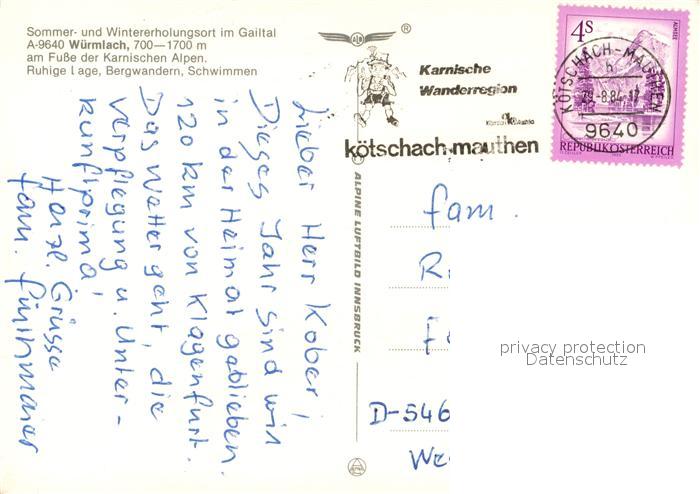 Sommer- und Wintererholungsort im Gailtal
A-9640 Würmlach, 700—1700 m
am Fuße der Karnischen Alpen.
Ruhige Lage, Bergwandern, Schwimmen
Lieber Herr Kober,
Dieses Jahr sind wir
in der Heimat geblieben.
120 km von Klagenfurt.
Das Wetter geht, die
Verpflegung u. Unter-
kunft prima,
Herzl. Grüsse
fam.
ALPINE LUFTBILD INNSBRUCK
®
Karnische
Wanderregion
kötschach-mauthen
4S
ALMSEE
KÖTSCHACH-MAUTHEN
h
8.84-17
9640
REPUBLIK ÖSTERREICH
fam.
R
F
D-546
We
privacy protection
Datenschutz